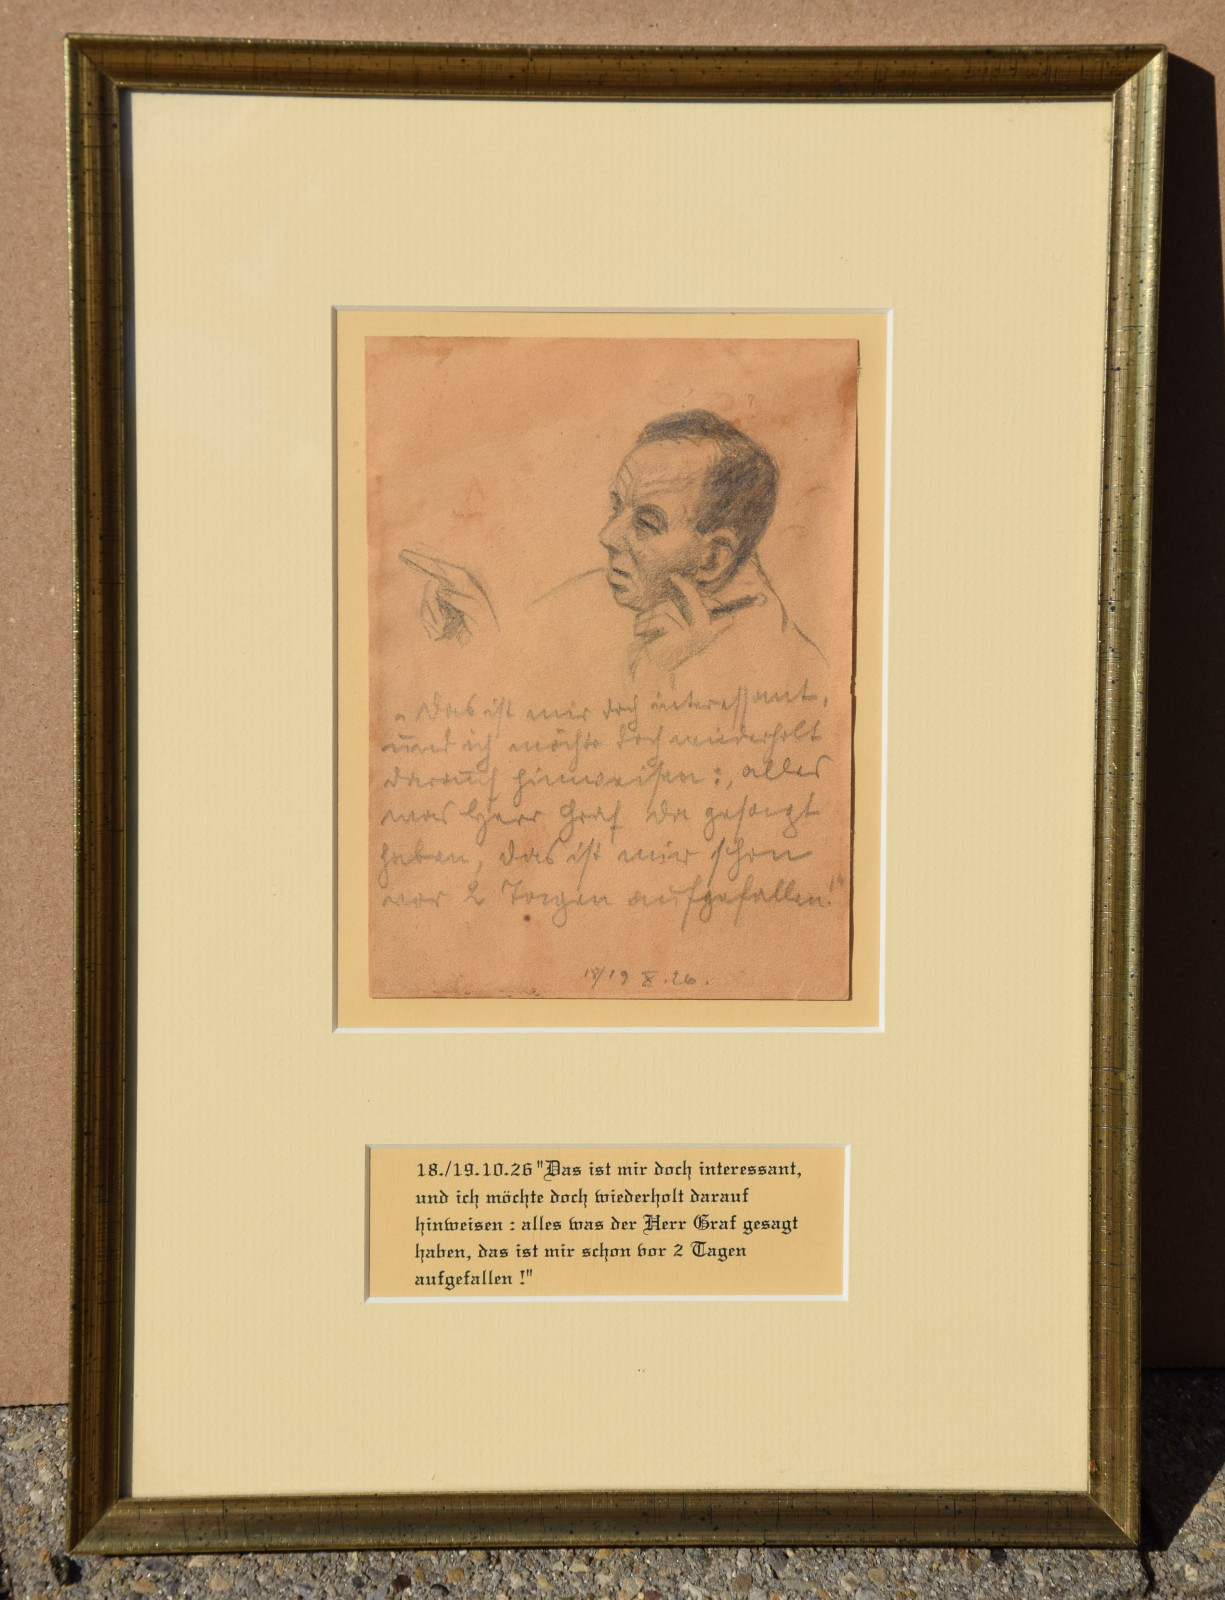 „Das ist mir doch interessant,
und ich möchte doch wiederholt
darauf hinweisen:, alles
was Herr Graf da gesagt
haben, das ist mir schon
vor 2 Tagen aufgefallen!"
18/19 X. 26.
18./19.10.26 "Das ist mir doch interessant,
und ich möchte doch wiederholt darauf
hinweisen : alles was der Herr Graf gesagt
haben, das ist mir schon vor 2 Tagen
aufgefallen !"